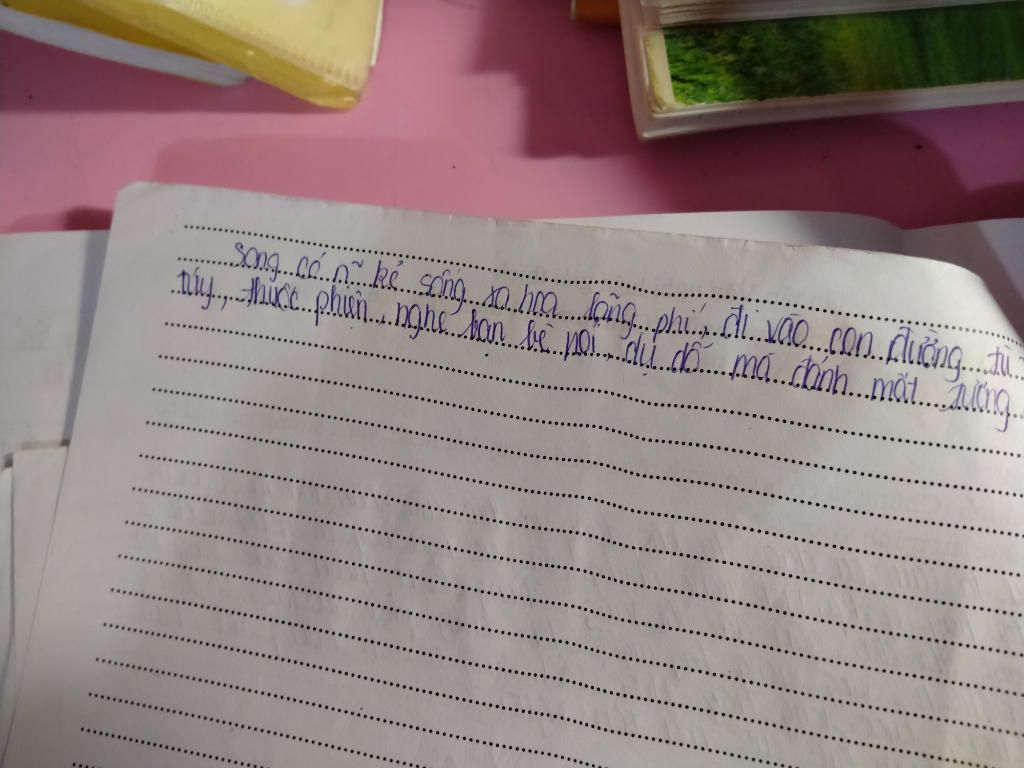 song có n~ kẻ sống xa hoa lãng phí, đi vào con đường tù
túy, thuốc phiện, nghe bạn bè nói, dụ dỗ mà đánh mất tương